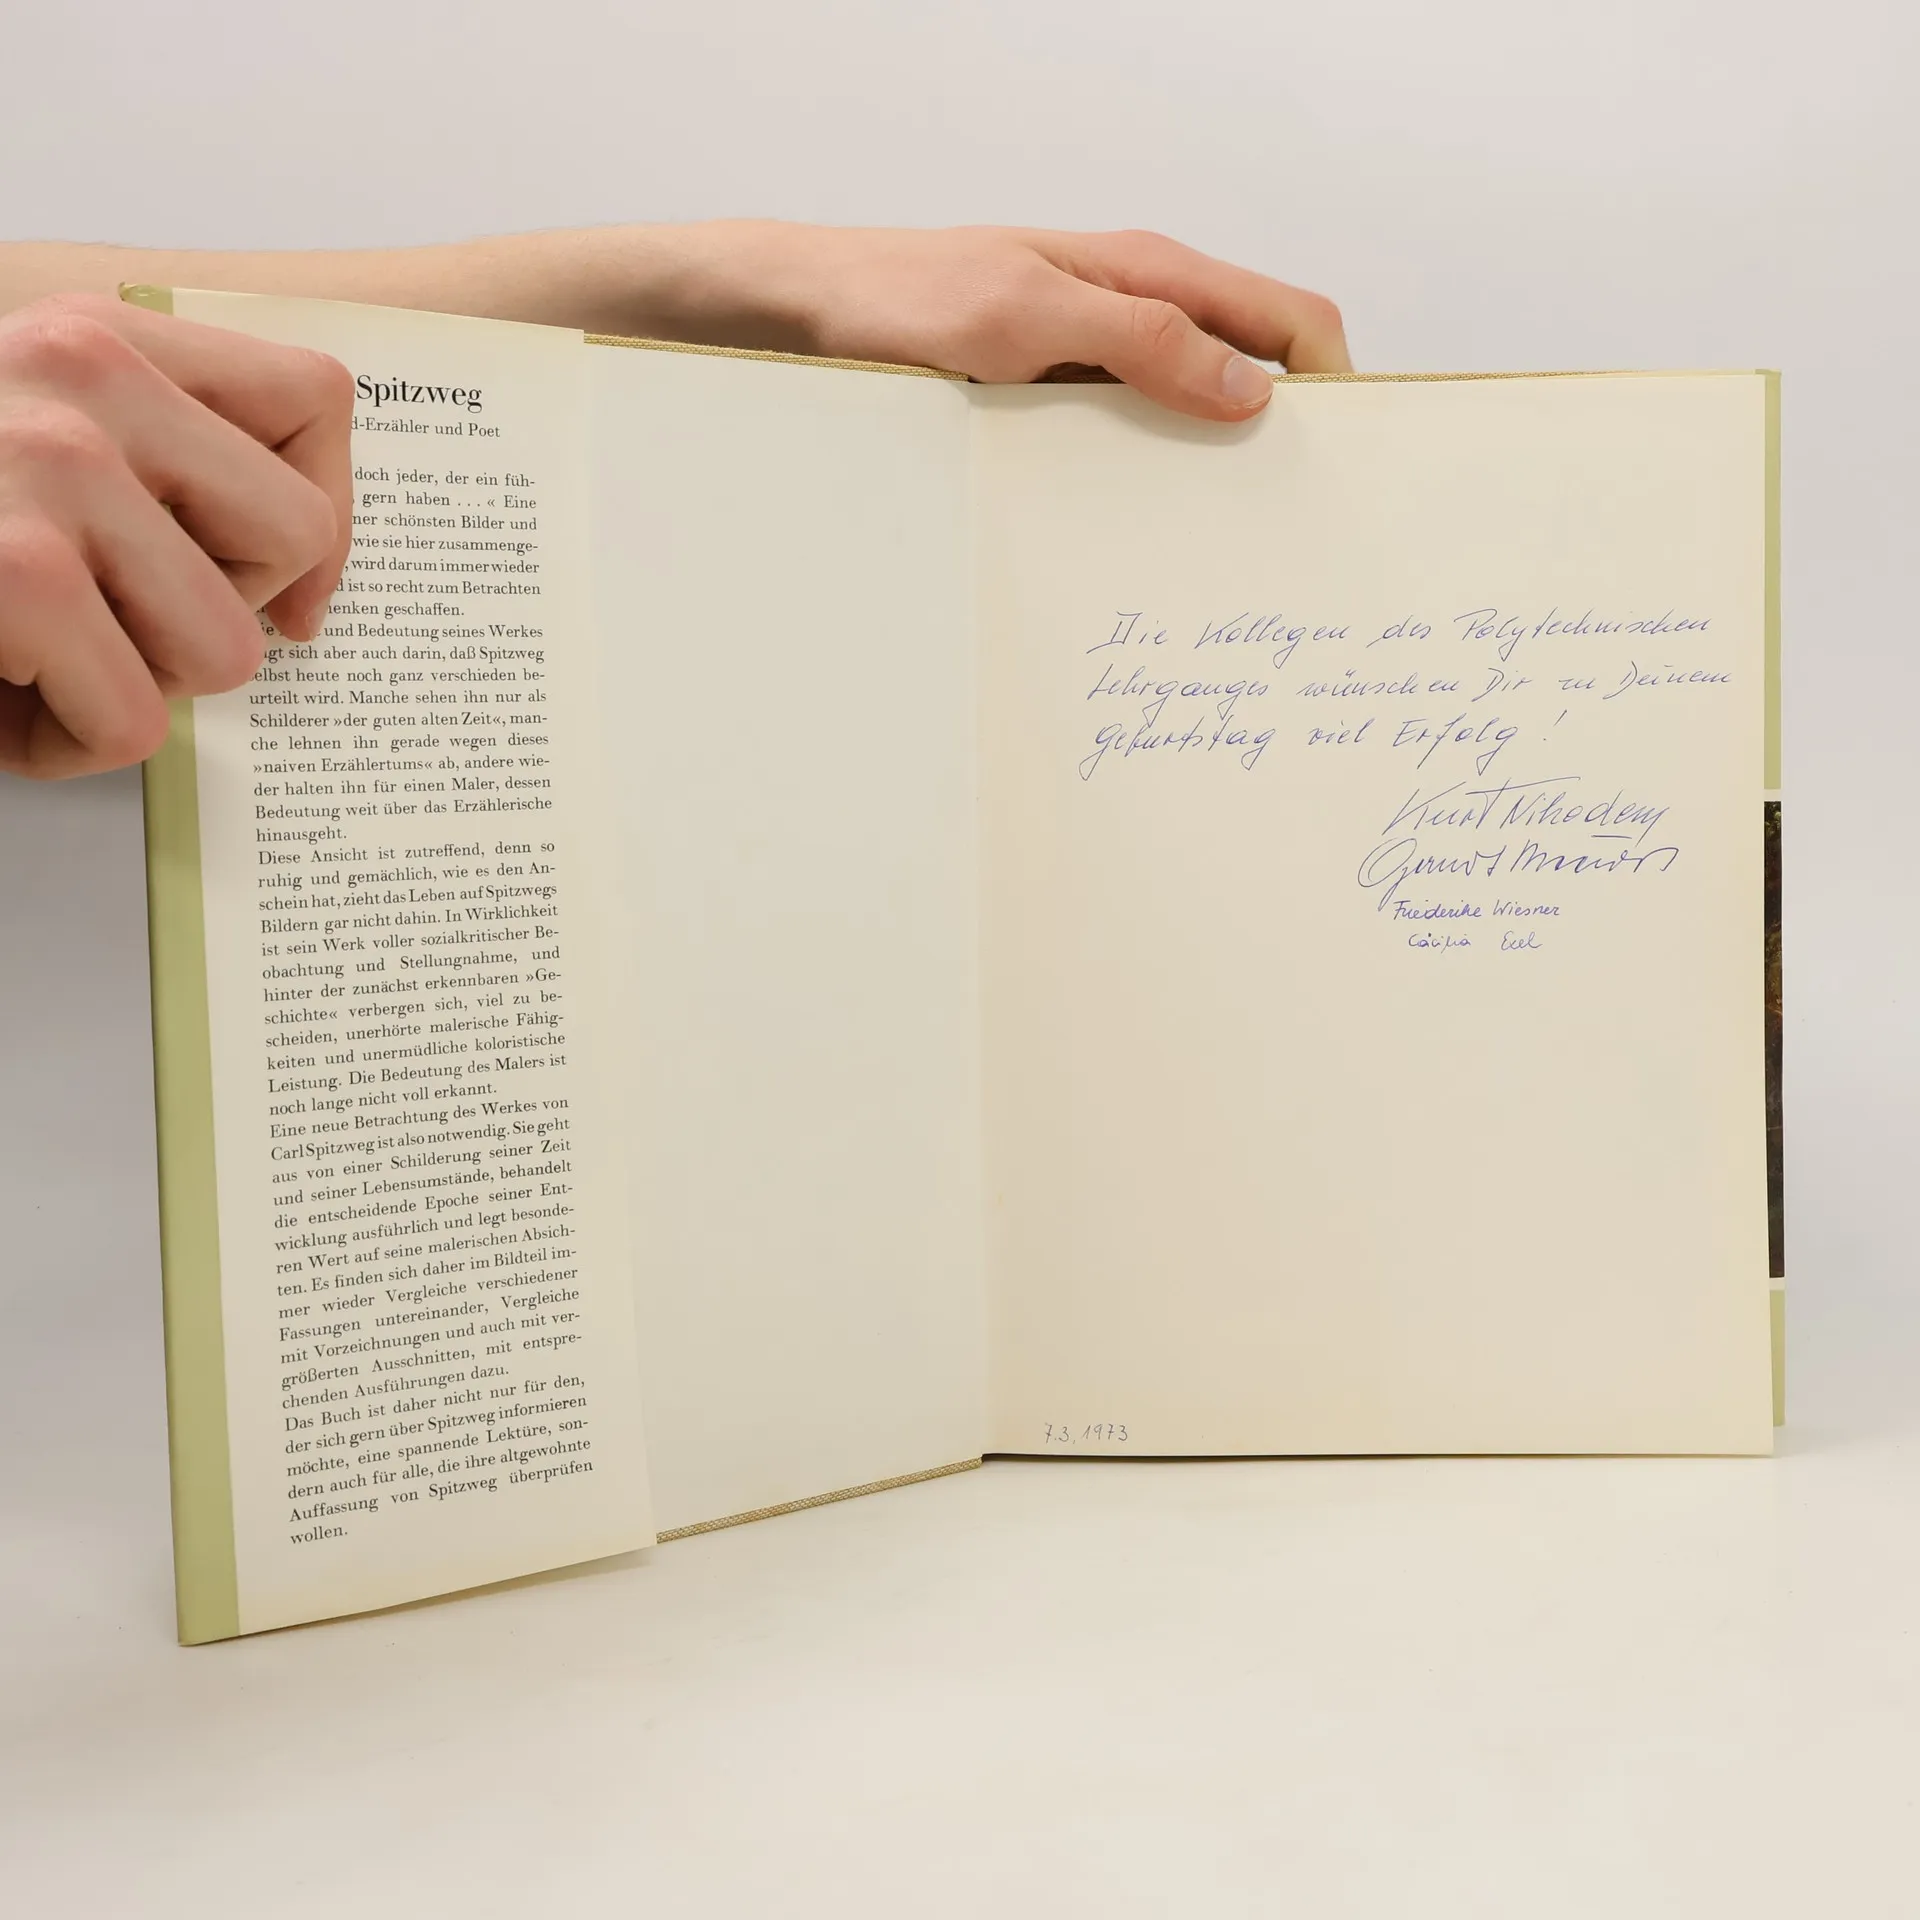 Spitzweg
d-Erzähler und Poet
doch jeder, der ein füh-
gern haben ... « Eine
ner schönsten Bilder und
wie sie hier zusammenge-
, wird darum immer wieder
d ist so recht zum Betrachten
enken geschaffen.
und Bedeutung seines Werkes
gt sich aber auch darin, daß Spitzweg
elbst heute noch ganz verschieden be-
urteilt wird. Manche sehen ihn nur als
Schilderer »der guten alten Zeit«, man-
che lehnen ihn gerade wegen dieses
»naiven Erzählertums« ab, andere wie-
der halten ihn für einen Maler, dessen
Bedeutung weit über das Erzählerische
hinausgeht.
Diese Ansicht ist zutreffend, denn so
ruhig und gemächlich, wie es den An-
schein hat, zieht das Leben auf Spitzwegs
Bildern gar nicht dahin. In Wirklichkeit
ist sein Werk voller sozialkritischer Be-
obachtung und Stellungnahme, und
hinter der zunächst erkennbaren »Ge-
schichte« verbergen sich, viel zu be-
scheiden, unerhörte malerische Fähig-
keiten und unermüdliche koloristische
Leistung. Die Bedeutung des Malers ist
noch lange nicht voll erkannt.
Eine neue Betrachtung des Werkes von
Carl Spitzweg ist also notwendig. Sie geht
aus von einer Schilderung seiner Zeit
und seiner Lebensumstände, behandelt
die entscheidende Epoche seiner Ent-
wicklung ausführlich und legt besonde-
ren Wert auf seine malerischen Absich-
ten. Es finden sich daher im Bildteil im-
mer wieder Vergleiche verschiedener
Fassungen untereinander, Vergleiche
mit Vorzeichnungen und auch mit ver-
größerten Ausschnitten, mit entspre-
chenden Ausführungen dazu.
Das Buch ist daher nicht nur für den,
der sich gern über Spitzweg informieren
möchte, eine spannende Lektüre, son-
dern auch für alle, die ihre altgewohnte
Auffassung von Spitzweg überprüfen
wollen.
Die Kollegen des Polytechnischen
Lehrganges wünschen Dir zu Deinem
Geburtstag viel Erfolg!
Kurt Nikodem
Friederike Wiesner
Cäcilia
7.3.1973